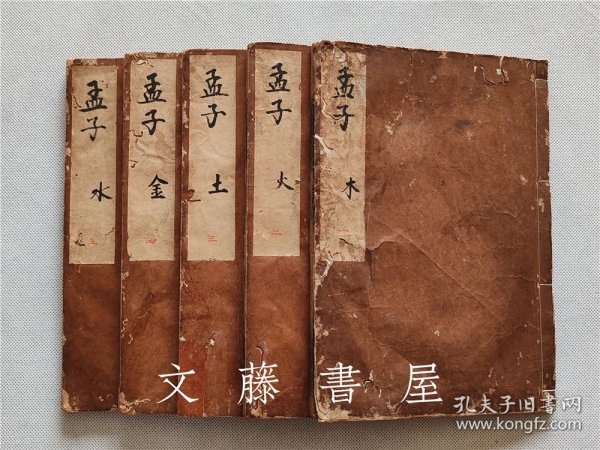 孟子
木
一
孟子
火
二
孟子
土
三
孟子
金
四
孟子
水
五
文藤書屋
孔夫子旧书网
www.kongfz.com